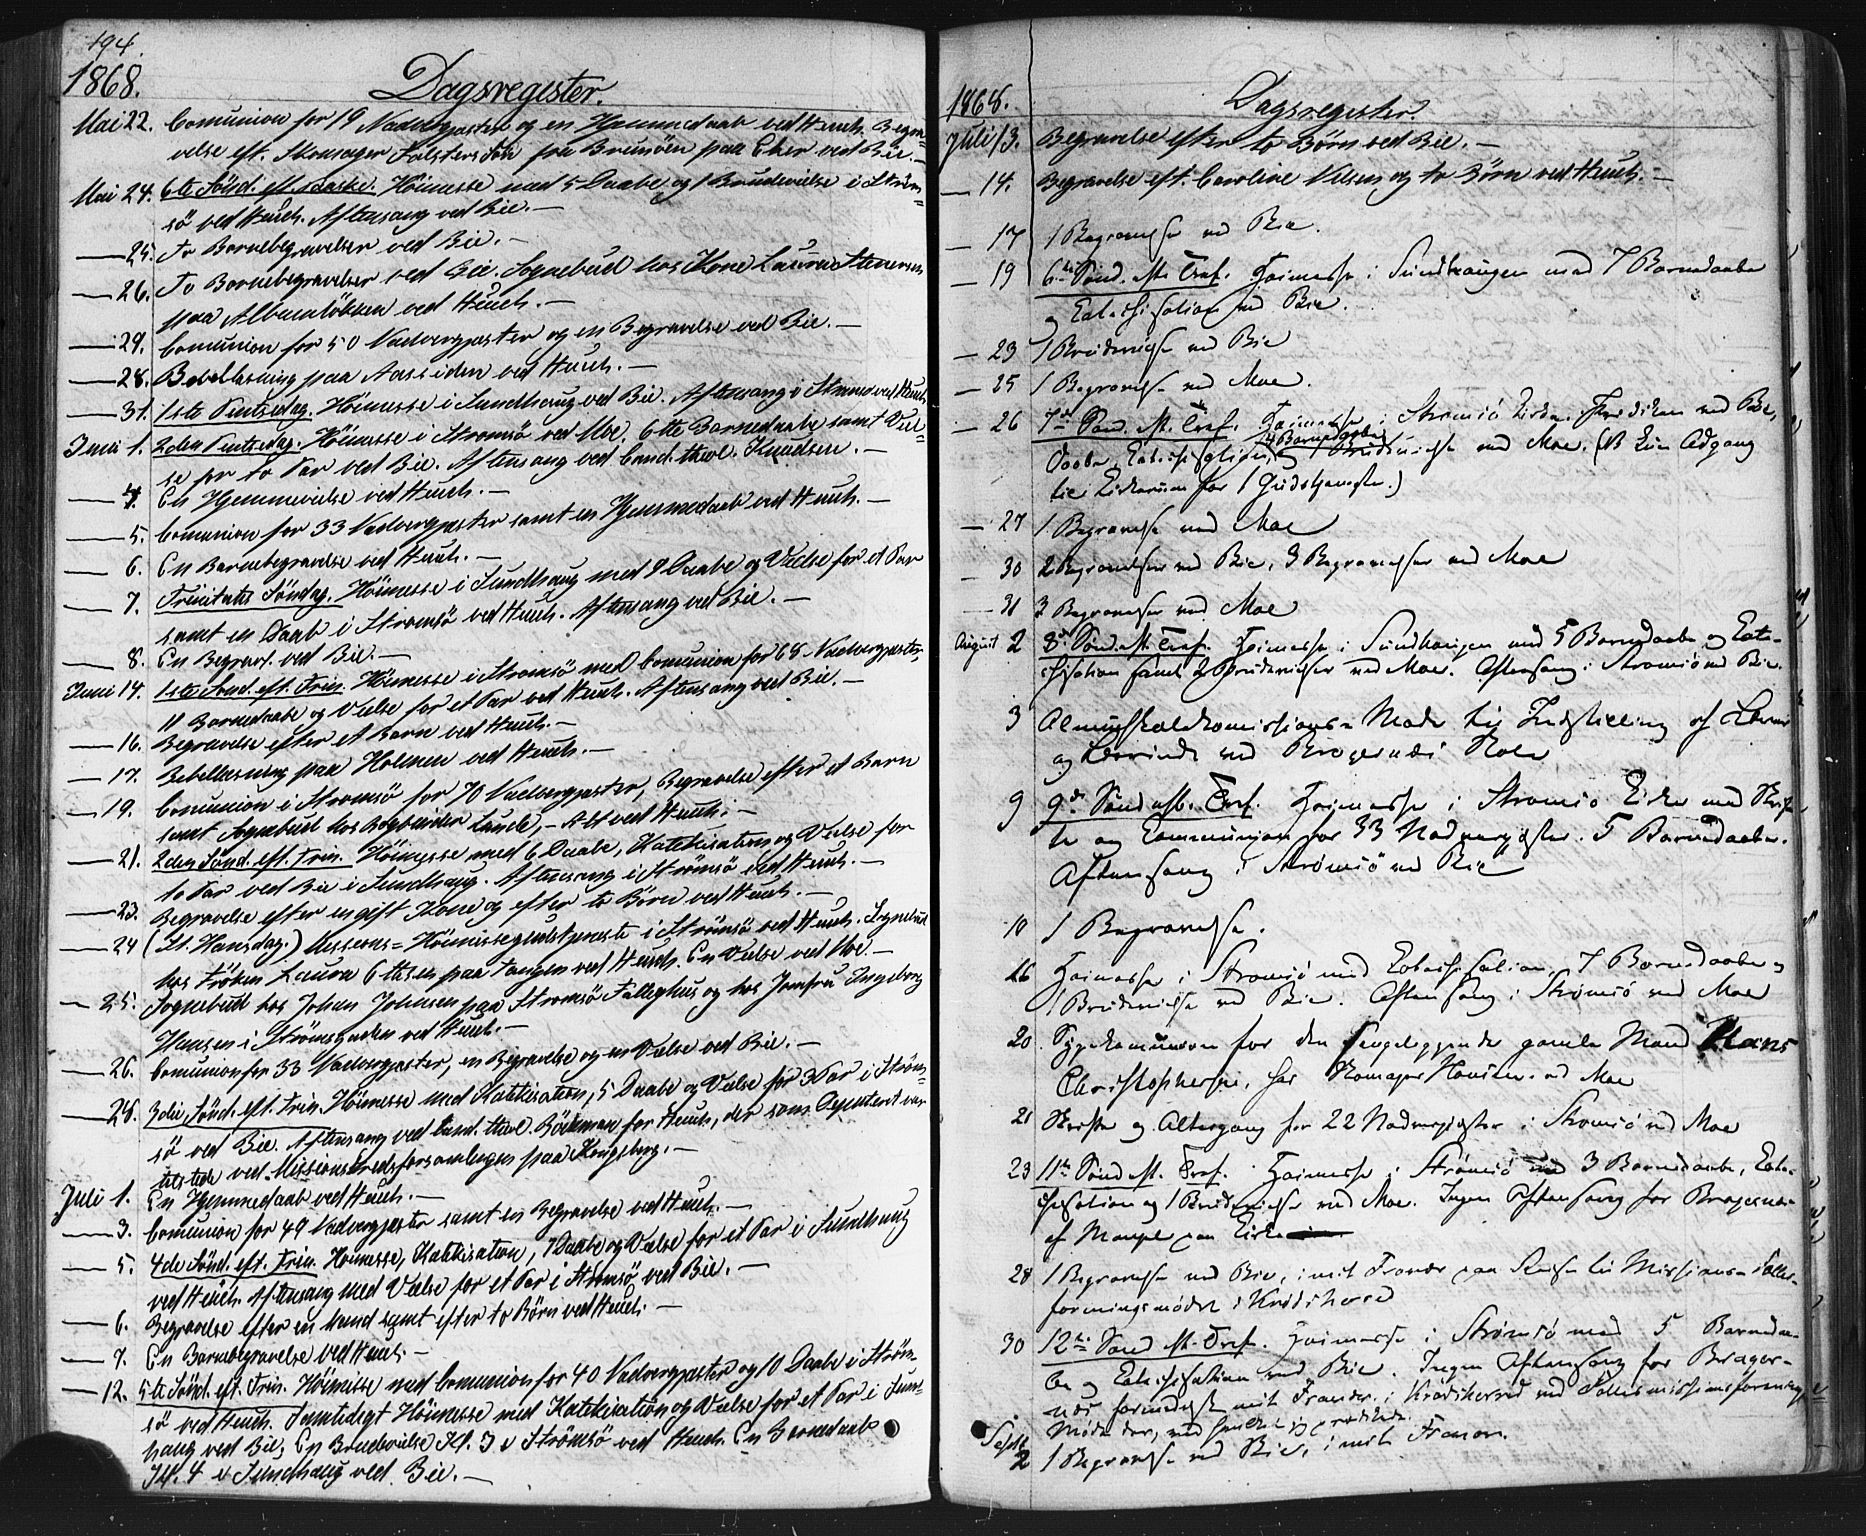 194.
1868. Dagsregister.
Mai 22. Comunion for 19 Nadvergjæster og en Hjemmedaab ved Heuch. Begra-
velse eft. Skomager Falsters Søn fra Brunøen paa Eker ved Bie.
Mai 24. 6te Sönd. eft. Paaske. Höimesse med 5 Daabe og 1 Brudevielse i Ström-
sö ved Heuch. Aftensang ved Bie. —
— 25. To Barnebegravelser ved Bie. —
— 26. To Barnebegravelser ved Bie. Sognebud hos Kone Laura
paa Albumløkken ved Heuch. —
— 29. Comunion for 50 Nadvergjæster og en Begravelse ved Bie. —
— 28. Bibellæsning paa Aassiden ved Heuch. —
— 31. 1ste Pintsedag. Höimesse i Sundhaug ved Bie. Aftensang i Strømsø ved Heuch
Juni 1. 2den Pintsedag. Höimesse i Strömsö ved Moe. 6 Barnedaabe samt Viel-
se for to Par ved Bie. Aftensang ved Cand. theol. Knudsen. —
— 4. En Hjemmevielse ved Heuch. —
— 5. Comunion for 33 Nadvergjæster samt en Hjemmedaab ved Heuch. —
— 6. En Barnebegravelse ved Heuch. —
— 7. Trinitatis Söndag. Höimesse i Sundhaug med 9 Daabe og Vielse for et Par
samt en Daab i Strömsö ved Heuch. Aftensang ved Bie. —
— 8. En Begrav. ved Bie. —
Juni 14. 1ste Sönd. eft. Trin. Höimesse i Strömsö med Comunion for 68 Nadvergjæster,
11 Barnedaabe og Vielse for et Par ved Heuch. Aftensang ved Bie. —
— 16. Begravelse efter et Barn ved Heuch. —
— 17. Bibellæsning paa Holmen ved Heuch. —
— 19. Comunion i Strömsö for 70 Nadvergjæster, Begravelse efter et Barn
samt Sognebud hos Bogbinder Lunde, – Alt ved Heuch. —
— 21. 2den Sönd. eft. Trin. Höimesse med 6 Daabe, Katekisation og Vielse for
to Par ved Bie i Sundhaug. Aftensang i Strömsö ved Heuch. —
— 23. Begravelse efter en gift Kone og efter to Börn ved Heuch. —
— 24 (St. Hansdag.) Höimessegudstjeneste i Strömsö ved Heuch. Sognebud
hos Fröken Laura Ottesen paa Tangen ved Heuch. En Vielse ved Moe. —
— 25. Sognebud hos Johan Johnsen paa Strømsö Fattighus og hos Jomfru Ingeborg
Hansen i Strömsgaden ved Heuch. —
— 26. Comunion for 33 Nadvergjæster, en Begravelse og en Vielse ved Bie. —
— 28. 3die Sönd. eft. Trin. Höimesse med Katekisation, 5 Daabe og Vielse for 3 Par i Ströms-
sö ved Bie. Aftensang ved Cand. theol. Böckman for Heuch, der som Deputeret var
tilstede ved Missionskredsforsamlingen paa Kongsberg. —
Juli 1. En Hjemmedaab ved Heuch. —
— 3. Comunion for 49 Nadvergjæster samt en Begravelse ved Heuch. —
— 5. 4de Sönd. eft. Trin. Höimesse, Katekisation, 7 Daabe og Vielse for et Par i Sundhaug
ved Heuch. Aftensang med Vielse for et Par i Strömsö ved Bie. —
— 6. Begravelse efter en Mand samt efter to Börn ved Heuch. —
— 7. En Barnebegravelse ved Heuch. —
— 12. 5te Sönd. eft. Trin. Höimesse med Comunion for 40 Nadvergjæster og 10 Daabe i Ström-
sö ved Heuch. Samtidigt Höimesse med Katekisation og Vielse for et Par i Sund-
haug ved Bie; En Brudevielse Kl. 3 i Strömsö ved Heuch. En Barnedaab
Kl. 4 i Sundhaug ved Bie. —
1868. Dagsregister.
Juli 13. Begravelse efter to Børn ved Bie. —
— 14. Begravelse eft. Caroline Nilsen og to Börn ved Heuch. —
— 17 1 Begravelse ved Bie.
— 19 6te Sönd. eft. Tref. Høimesse i Sundhaugen med 7 Barnedaabe
og Catechisation ved Bie.
— 23 1 Brudevielse ved Bie
— 25 1 Begravelse ved Moe.
— 26 7de Sønd. eft. Tref. Høimesse i Strømsø Kirke. Prædiken ved Bie,
4 Barnedaabe
Daabe, Catechisation, og 1 Brudevielse ved Moe. ( Adgang
til for 1 Gudstjeneste.)
— 27 1 Begravelse ved Moe
— 30 2 Begravelser ved Bie, 3 Begravelser ved Moe
— 31 3 Begravelser ved Moe
August 2 8de Sønd. eft. Tref. Høimesse i Sundhaugen med 5 Barnedaabe og Cate-
chisation samt 2 Brudevielser ved Moe. Aftensang i Strømsø ved Bie.
3 Almueskolekomissions-Møde til Indstilling af Lærer
og Lærerinde ved Bragernæs Skole
9 9de Sønd. eft. Tref. Høimesse i Strømsø Kirke med Skrif-
te og Communion for 33 Nadvergjæster. 5 Barnedaabe.
Aftensang i Strømsö ved Bie
10 1 Begravelse.
16 Høimesse i Strømsø med Catechisation, 7 Barnedaabe og
1 Brudevielse ved Bie. Aftensang i Strømsö ved Moe
20 Sygekomunion for den sengeliggende gamle Mand Hans
Christophersen, hos Skomager Hansen. ved Moe
21 Skrifte og Altergang for 22 Nadvergjæster i Strømsö ved Moe
23 11te Sønd. eft. Tref. Høimesse i Strømsö med 3 Barnedaabe, Cate-
chisation og 1 Brudevielse ved Moe. Ingen Aftensang for Bragernæs
af Mangel paa Kirke
28 1 Begravelse ved Bie, i mit Fravær paa Reise til Missions-Fælles-
foreningsmødet i Krødsherred
30 12te Sønd. eft. Tref. Høimesse i Strømsö med 5 Barnedaa-
be og Catechisation ved Bie. Ingen Aftensang for Brager-
næs formedelst mit Fravær i Krødsherred ved Fællesmissionsforenings
Møde der, ved
Septr 2 1 Begravelse ved Bie, i mit Fravær.